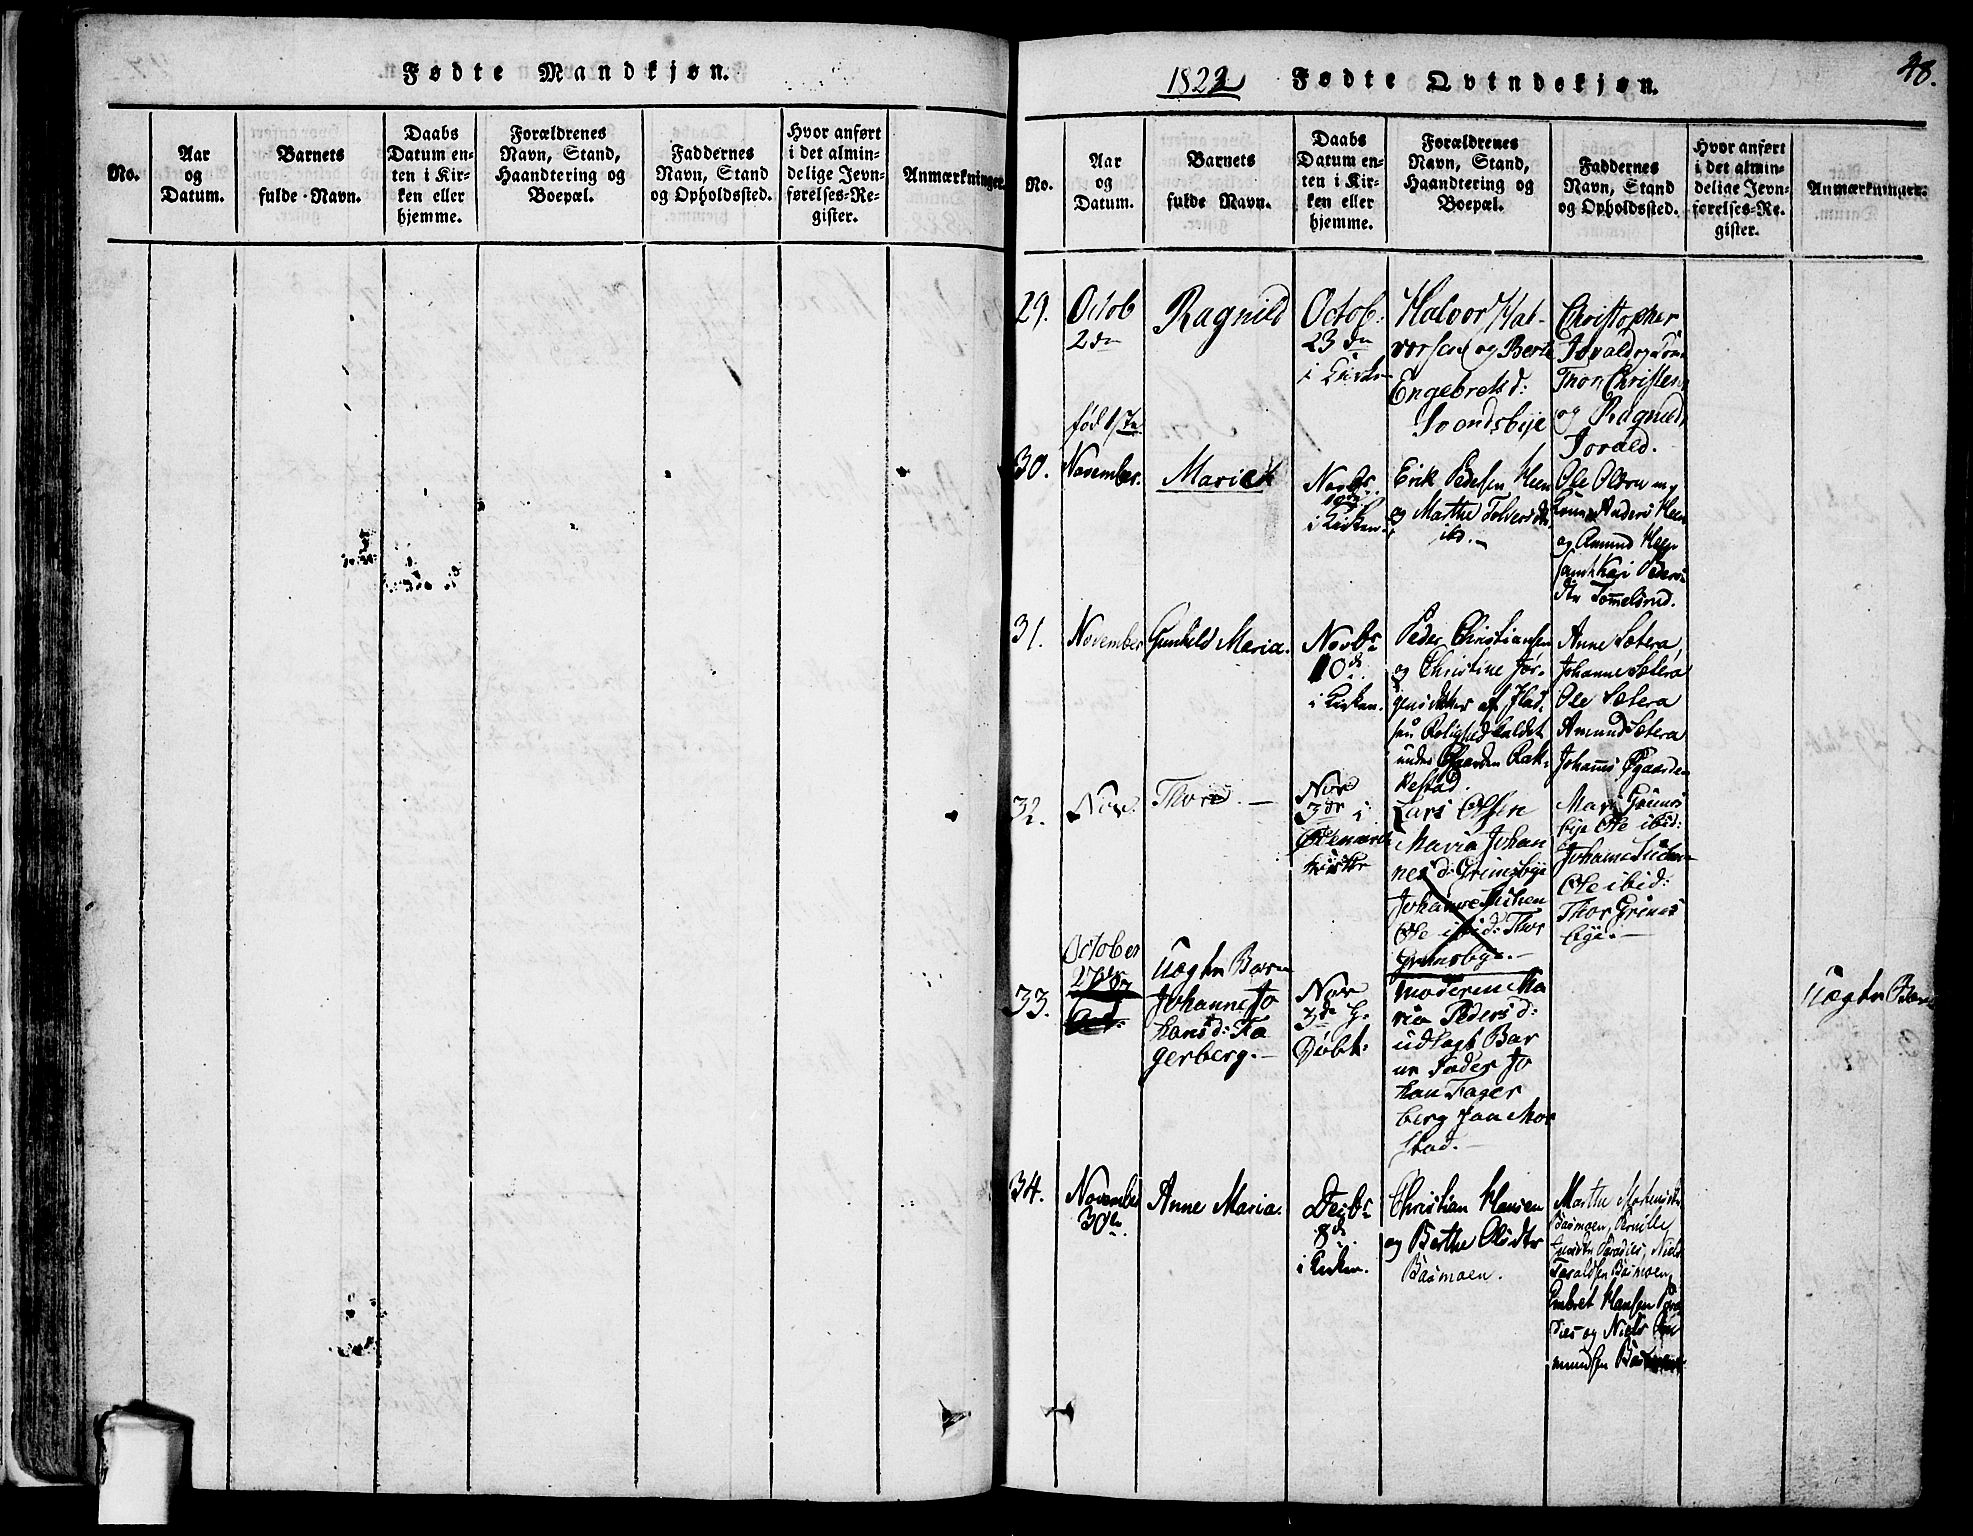 Fødte Mandkjøn.
No.
Aar
og
Datum.
Barnets
fulde Navn.
Daabs
Datum en-
ten i Kir-
ken eller
hjemme.
Forældrenes
Navn, Stand,
Haandtering og
Boepæl.
Faddernes
Navn, Stand
og Opholdssted.
Hvor anført
i det almin-
delige Jevn-
førelses-Re-
gister.
Anmærkninger.
1822 Fødte Qvindekjøn.
48.
No.
Aar
og
Datum.
Barnets
fulde Navn.
Daabs
Datum en-
ten i Kir-
ken eller
hjemme.
Forældrenes
Navn, Stand,
Haandtering og
Boepæl.
Faddernes
Navn, Stand
og Opholdssted.
Hvor anført
i det almin-
delige Jevn-
førelses-Re-
gister.
Anmærkninger.
29.
Octob
2den
Ragnild
Octob:
23dn
i Kirke
Halvor Hal-
vorsen og Berte
Engebretsd:
Svendsbye
Christopher
Jorald og Kone
Thor Christensen
og Ragnild
Jorald.
30.
født 1/7
November.
Marie
Novbr
10de
i Kirken.
Erik Pedersen Heen
og Marthe Tolversdtr
ibd.
Ole Olsen og
Kone Anders Heen
og Amund Heen
samt Kari Peders-
dtr Tommelsrud.
31.
November
Gunhild Maria.
Novbr
10de
i Kirken.
Peder Christiansen
og Christine Jør-
gensdatter af Plad-
sen Rolighed kaldet
under Gaarden Rak-
kestad.
Anne Sætera,
Johanne Sætera
Ole Sætera
Amund Sætera
Johannes Øgaarden
32.
Nove.
Thore.
Nov
3de i
Kirke
Lars Olsen
Maria Johan
nesd: Grimsbye
Johanne
Ole ibid: Thor
Grimsbye.
Mari Grims
bye Ole ibid:
Johanne
Ole ibid:
Thor Grims
bye.
33.
October
27de
Uægte Barn
Johanne Jo
hansd: Fa
gerberg.
Nov
3de H.
Døbt.
Moderen Ma
ria Pedersd:
udlagt Bar
ne Fader Jo
han Fager
berg paa Mor
stad.
Uægte Barn
34.
November
30te
Anne Maria.
Decbr
8de
i Kirken.
Christian Hansen
og Berthe Olsdtr
Basmoen.
Marthe Mortensdtr
Basmoen, Pernille
Paradies, Niels
Taraldsen Basmoen,
Embret Hansen Para
dies og Niels
mundsen Basmoen